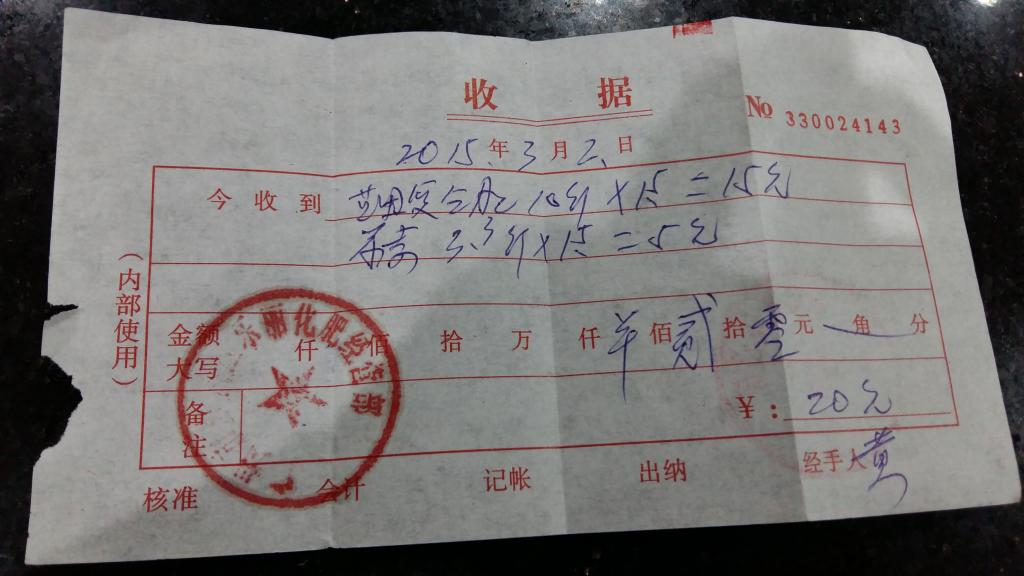 收据
No 330024143
2015年3月2日
今收到 复合肥 10斤 X 1.5 = 15元
3.3斤 X 1.5 = 5元
(内部使用)
金额大写 仟 佰 拾 万 仟 佰 贰拾零元 角 分
备注
¥: 20元
化肥经营部
核准 会计 记帐 出纳 经手人 黄